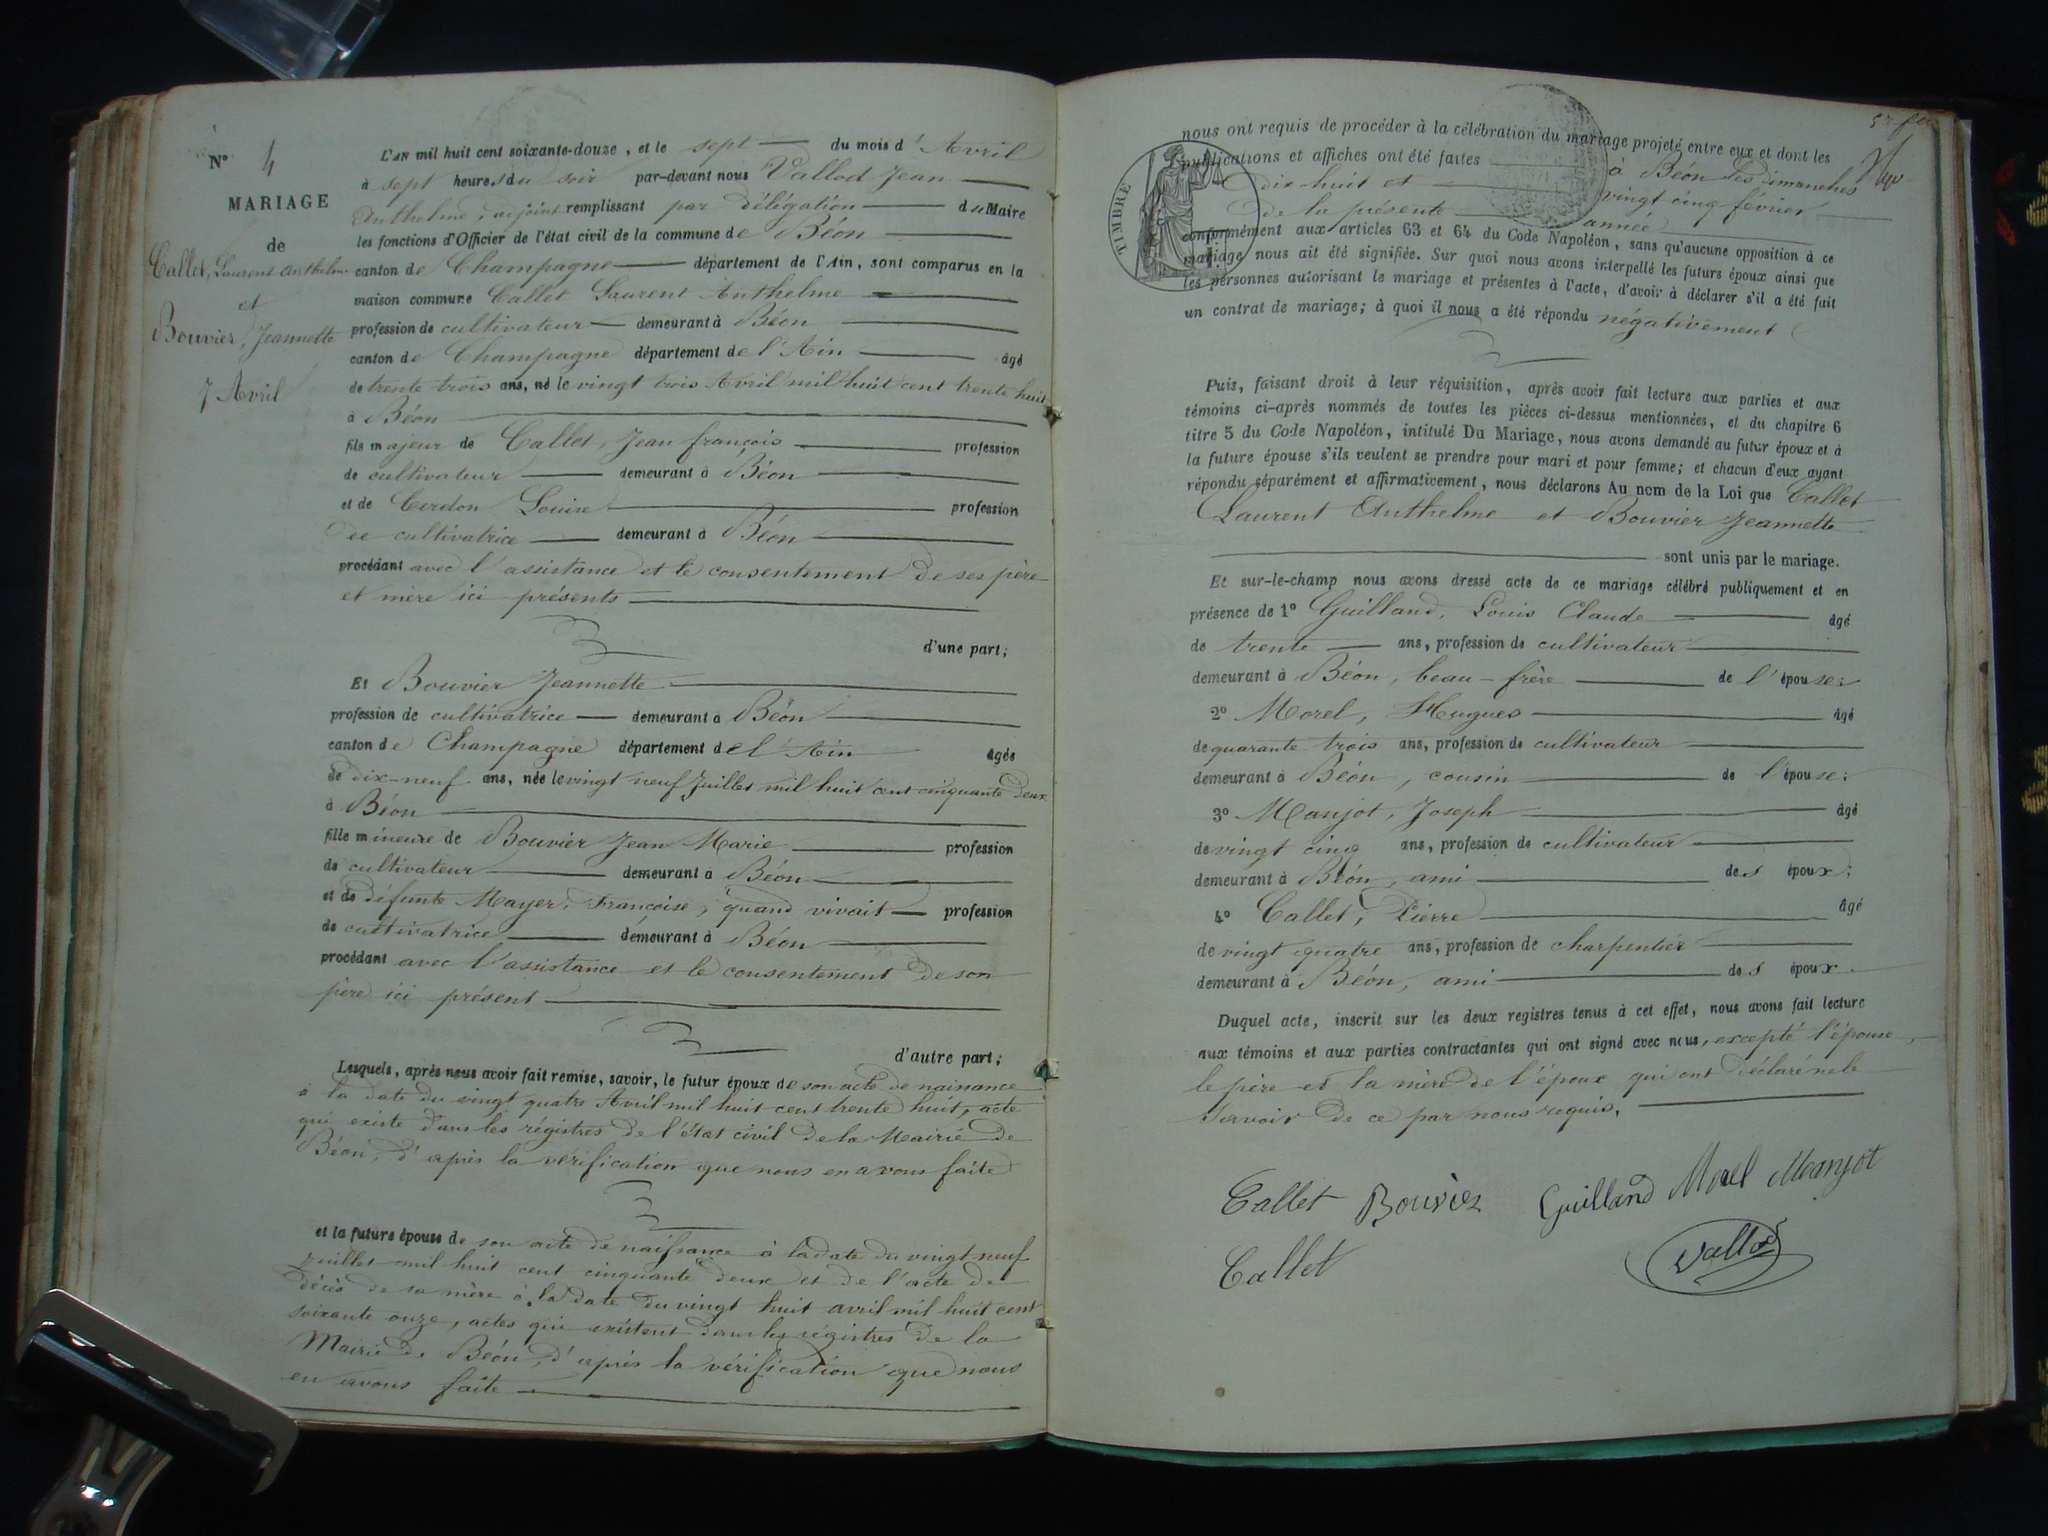 N° 4
MARIAGE
de
Callet, Laurent Anthelme
et
Bouvier, Jeannette
7 Avril
L'AN mil huit cent soixante-douze, et le sept du mois d'Avril
à sept heures du soir par-devant nous Vallod Jean
Anthelme, adjoint remplissant par délégation du Maire
les fonctions d'Officier de l'état civil de la commune de Béon
canton de Champagne département de l'Ain, sont comparus en la
maison commune Callet Laurent Anthelme
profession de cultivateur demeurant à Béon
canton de Champagne département de l'Ain âgé
de trente trois ans, né le vingt trois Avril mil huit cent trente huit
à Béon
fils majeur de Callet, Jean françois profession
de cultivateur demeurant à Béon
et de Cerdon Louise profession
de cultivatrice demeurant à Béon
procédant avec l'assistance et le consentement de ses père
et mère ici présents
d'une part;
Et Bouvier Jeannette
profession de cultivatrice demeurant à Béon
canton de Champagne département de l'Ain âgée
de dix-neuf ans, née le vingt neuf Juillet mil huit cent cinquante deux
à Béon
fille mineure de Bouvier Jean Marie profession
de cultivateur demeurant à Béon
et de défunte Mayer, Françoise, quand vivait profession
de cultivatrice demeurant à Béon
procédant avec l'assistance et le consentement de son
père ici présent
d'autre part;
Lesquels, après nous avoir fait remise, savoir, le futur époux de son acte de naissance
à la date du vingt quatre Avril mil huit cent trente huit, acte
qui existe dans les régistres de l'état civil de la Mairie de
Béon, d'après la vérification que nous en avons faite
et la future épouse de son acte de naissance à la date du vingt neuf
juillet mil huit cent cinquante deux et de l'acte de
décès de sa mère à la date du vingt huit avril mil huit cent
soixante onze, actes qui existent dans les régistres de la
Mairie de Béon, d'après la vérification que nous
en avons faite
nous ont requis de procéder à la célébration du mariage projeté entre eux et dont les
publications et affiches ont été faites à Béon les dimanches
dix-huit et vingt cinq février
de la présente année
TIMBRE
conformément aux articles 63 et 64 du Code Napoléon, sans qu'aucune opposition à ce
mariage nous ait été signifiée. Sur quoi nous avons interpellé les futurs époux ainsi que
les personnes autorisant le mariage et présentes à l'acte, d'avoir à déclarer s'il a été fait
un contrat de mariage; à quoi il nous a été répondu négativement
Puis, faisant droit à leur réquisition, après avoir fait lecture aux parties et aux
témoins ci-après nommés de toutes les pièces ci-dessus mentionnées, et du chapitre 6
titre 5 du Code Napoléon, intitulé Du Mariage, nous avons demandé au futur époux et à
la future épouse s'ils veulent se prendre pour mari et pour femme; et chacun d'eux ayant
répondu séparément et affirmativement, nous déclarons Au nom de la Loi que Callet
Laurent Anthelme et Bouvier Jeannette
sont unis par le mariage.
Et sur-le-champ nous avons dressé acte de ce mariage célébré publiquement et en
présence de 1° Guilland, Louis Claude âgé
de trente ans, profession de cultivateur
demeurant à Béon, beau-frère de l'épouse;
2° Morel, Hugues âgé
de quarante trois ans, profession de cultivateur
demeurant à Béon, cousin de l'épouse;
3° Manjot, Joseph âgé
de vingt cinq ans, profession de cultivateur
demeurant à Béon, ami des époux;
4° Callet, Pierre âgé
de vingt quatre ans, profession de charpentier
demeurant à Béon, ami des époux.
Duquel acte, inscrit sur les deux registres tenus à cet effet, nous avons fait lecture
aux témoins et aux parties contractantes qui ont signé avec nous, excepté l'épouse,
le père et la mère de l'époux qui ont déclaré ne le
savoir de ce par nous requis.
Callet Bouvier Guilland Morel Manjot
Callet Vallod